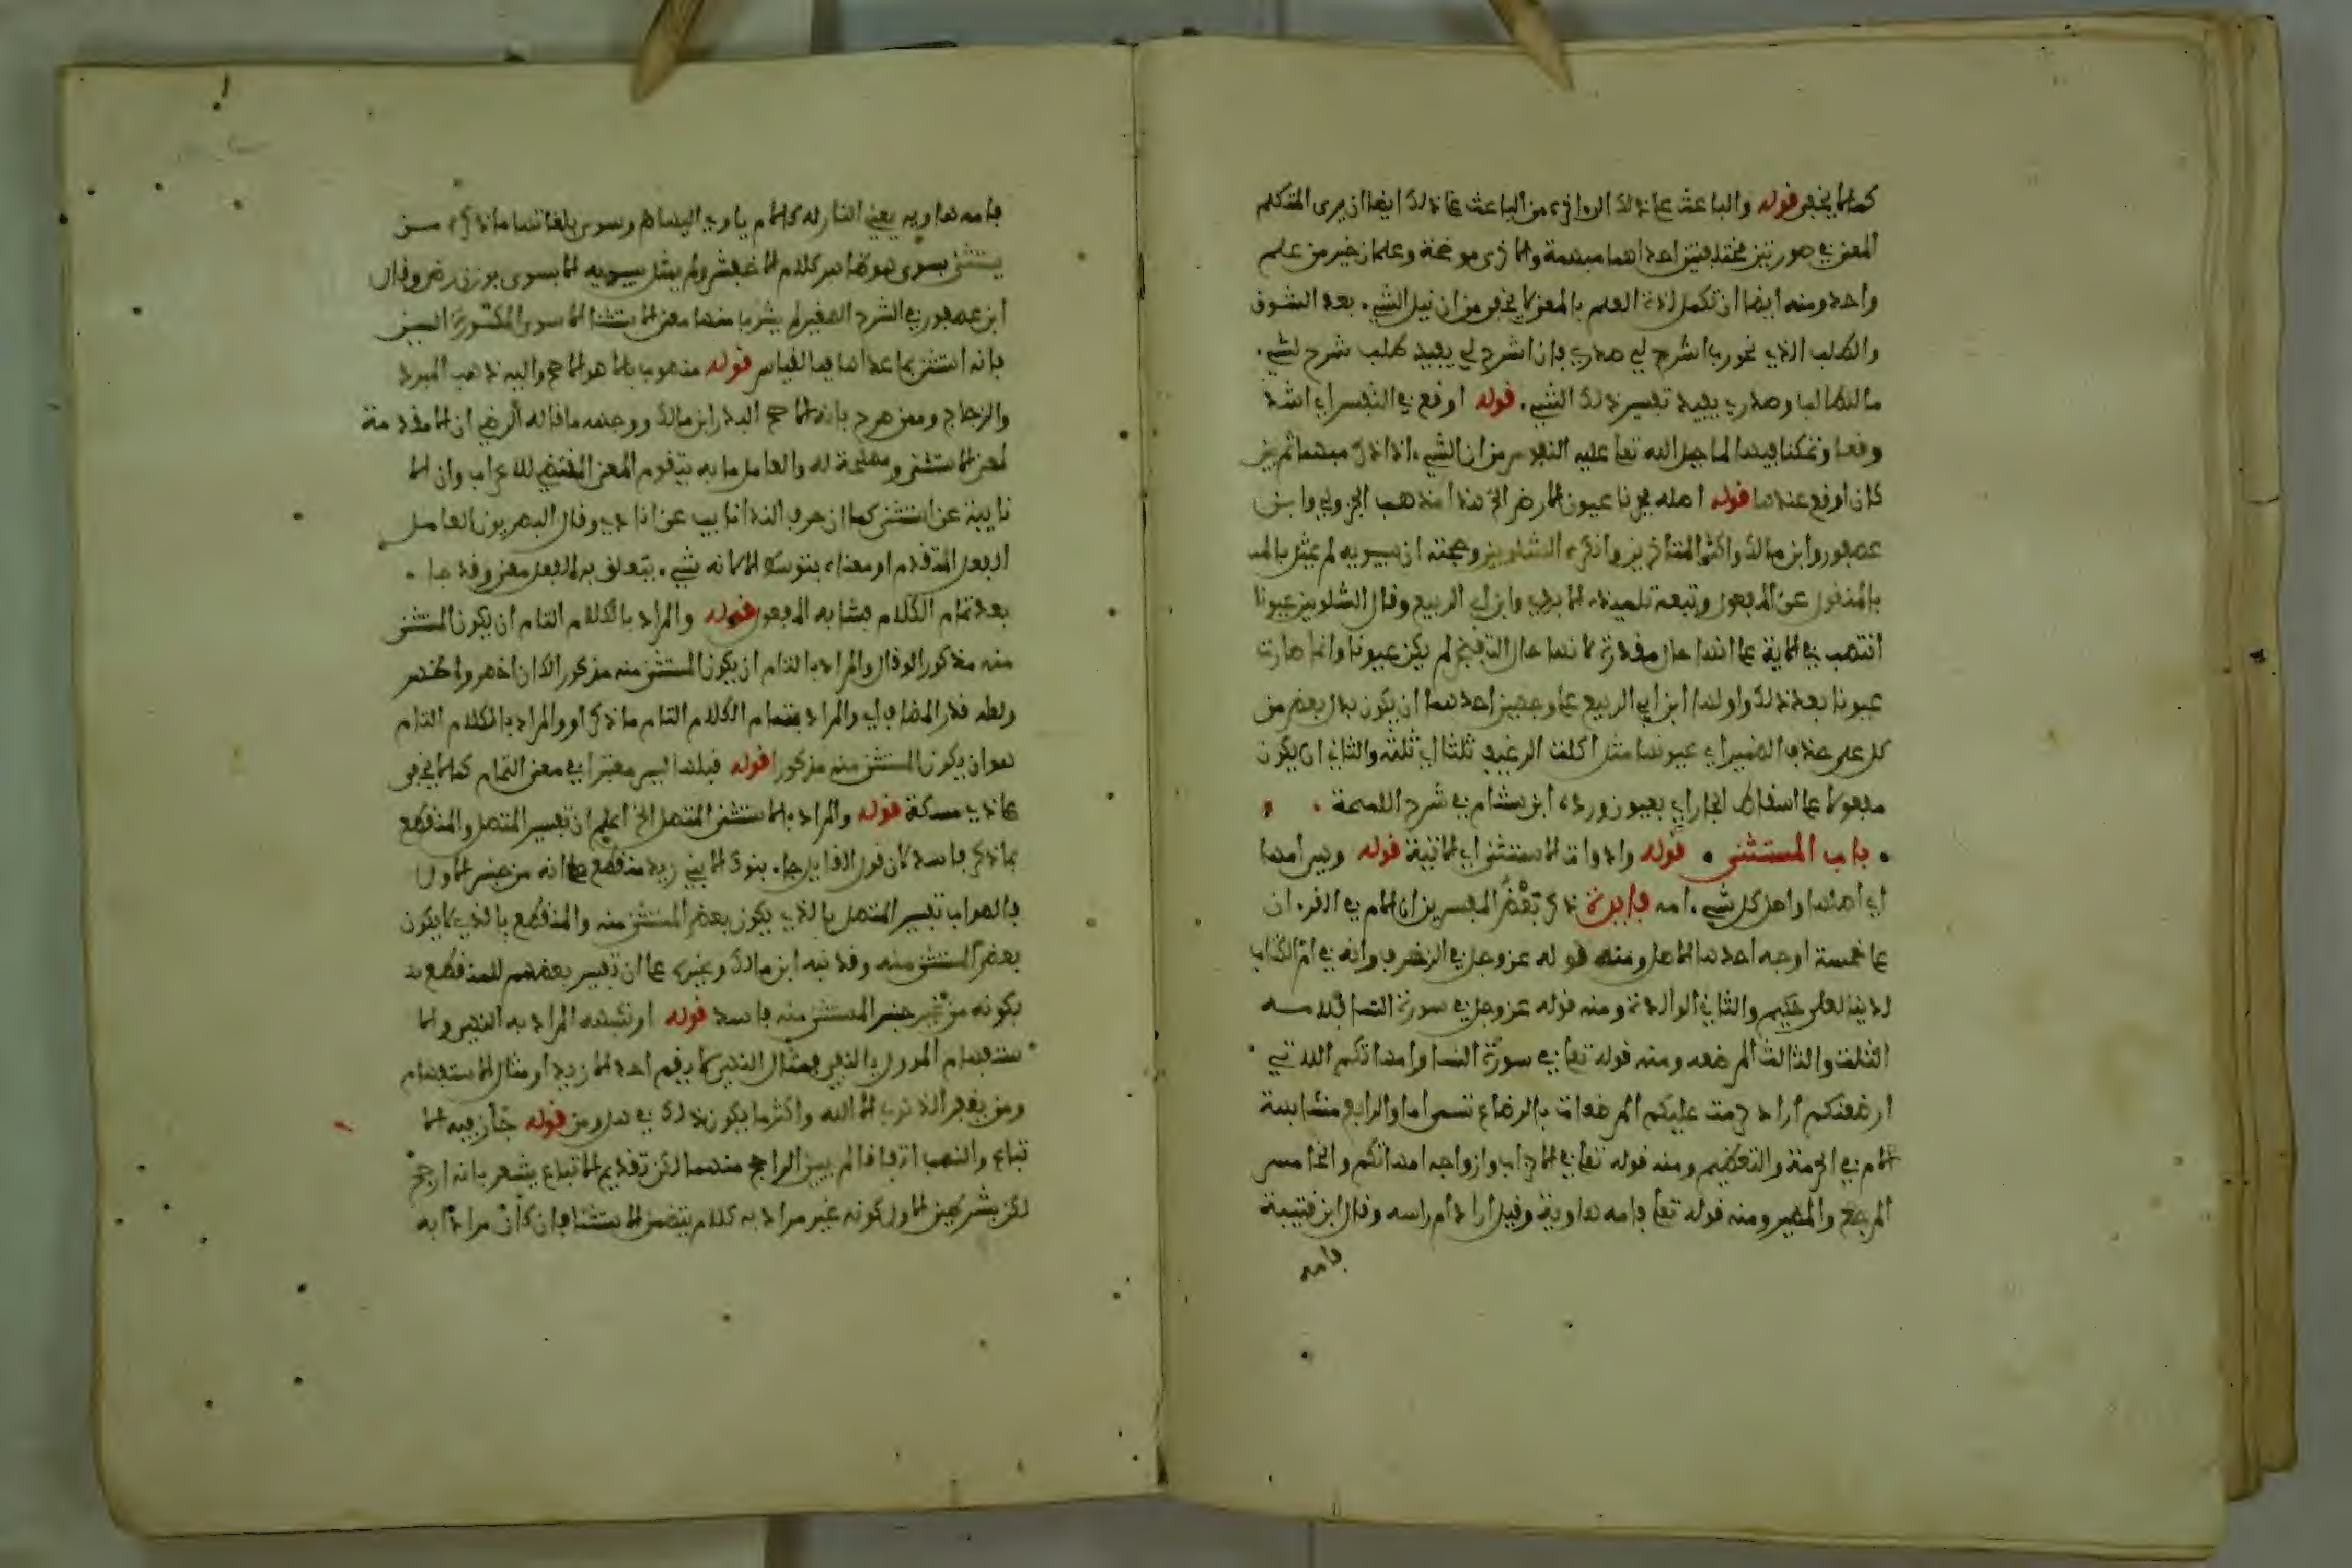 كما لا يخفى قوله والباعث على ذلك الخ اي من الباعث على ذلك ايضا ان يرى المتكلم
المعنى في صورتين مختلفتين احداهما مبهمة والاخرى موضحة وعلمان خير من علم
واحد ومنه ايضا ان تكمل لذة العلم بالمعنى لا يخفى من ان نيل الشيء بعد الشوق
والطلب الذي نحو رب اشرح لي صدري فان اشرح لي يفيد طلب شرح لشيء
ما للطالب وصدري يفيد تفسير ذلك الشيء قوله اوقع في النفس اي اشد
وقعا وتمكنا فيها لما جبل الله تعا عليه النفوس من ان الشيء اذا ذكر مبهما ثم بين
كان اوقع عندها قوله اصله فجرنا عيون الارض الخ هذا مذهب الجزولي وابن
عصفور وابن مالك واكثر المتاخرين وانكره الشلوبين وحجته ان سيبويه لم يمثل بالمنـ
بالمنقول عن المفعول وتبعه تلميذه الابدي وابن ابي الربيع وقال الشلوبين عيونا
انتصب في الاية على انها حال مقدرة لانها حال التفجير لم يكن عيونا وانما صارت
عيونا بعد ذلك واولها ابن ابي الربيع على وجهين احدهما ان يكون بدل بعض من
كل على حذف الضمير اي عيونها مثل اكلت الرغيف ثلثا اي ثلثه والثاني ان يكون
مفعولا على اسقاط الجار اي بعيون ورده ابن هشام في شرح اللمحة
باب المستثنى قوله وادوات الاستثنى اي الاتية قوله وهي امها
اي اصلها واصل كل شيء امه فايدة ذكر بعض المفسرين ان الام في القرءان
على خمسة اوجه احدها الاصل ومنه قوله عز وجل في الزخرف وانه في ام الكتاب
لدينا لعلي حكيم والثاني الوالدة ومنه قوله عز وجل في سورة النسا فلامه
الثلث والثالث المرضعه ومنه قوله تعا في سورة النسا وامهاتكم اللاتي
ارضعنكم اراد حرمت عليكم المرضعات بالرضاع تسمى اما والرابع مشابهة
الام في الحرمة والتعظيم ومنه قوله تعا في الاحزاب وازواجه امهاتكم والخامس
المرجع والمصير ومنه قوله تعا فامه هاوية وقيل اراد ام راسه وقال ابن قتيبة
فامه
فامه هاويه يعني النار له كالام ياوي اليها وسوى بلغاتها ما ذكره من
يستثنى بسوى هو ظاهر كلام الاخفش ولم يمثل سيبويه الا بسوى بوزن رضى وقال
ابن عصفور في الشرح الصغير لم يشرب منها معنى الاستثنا الا سوى المكسورة السين
فانه استثنى بما عداها فبالقياس قوله منصوب بالا هو الاصح واليه ذهب المبرد
والزجاج وممن صرح بانه الاصح البدر ابن مالك ووجهه ما قاله الرضي ان الا مقدمة
لمعنى الاستثنى ومحصلة له والعامل ما به يتقوم المعنى المقتضي للاعراب وان الا
نايبة عن استثنى كما ان حرف الندا نايب عن انادي وقال البصريون العامل
الفعل المتقدم او معناه بتوسط الا لانه شيء يتعلق بالفعل معنى وقد جا
بعد تمام الكلام فشابه المفعول قوله والمراد بالكلام التام ان يكون المستثنى
منه مذكورا لو قال والمراد بالتام ان يكون المستثنى منه مذكورا لكان اخصر واظهر
ولعله قدر المضاف اي والمراد بتمام الكلام التام ما ذكر او والمراد بالكلام التام
هو ان يكون المستثنى منه مذكورا قوله قبلها ليس معتبرا في معنى التمام كما لا يخفى
على ذي مسكة قوله والمراد بالاستثنى المتصل الخ اعلم ان تفسير المتصل والمنقطع
بما ذكر فاسد لان قول القايل جا بنوك الا بني زيد منقطع مع انه من جنس الاول
فالصواب تفسير المتصل بالذي يكون بعض المستثنى منه والمنقطع بالذي لا يكون
بعض المستثنى منه وقد نبه ابن مالك وغيره على ان تفسير بعضهم للمنقطع بـ
بكونه من غير جنس المستثنى منه فاسد قوله او شبهه المراد به النهي والا
ستفهام المؤول بالنفي فمثال النهي لا يقم احد الا زيد او مثال الاستفهام
ومن يغفر الذنوب الا الله واكثر ما يكون ذلك في هل ومن قوله جاز فيه الا
تباع والنصب اتفاقا لم يبين الراجح منهما لكن تقديم الاتباع يشعر بانه ارجح
لكن بشرطين الاول كونه غير مراد به كلام يتضمن الاستثنا فان كان مرادا به